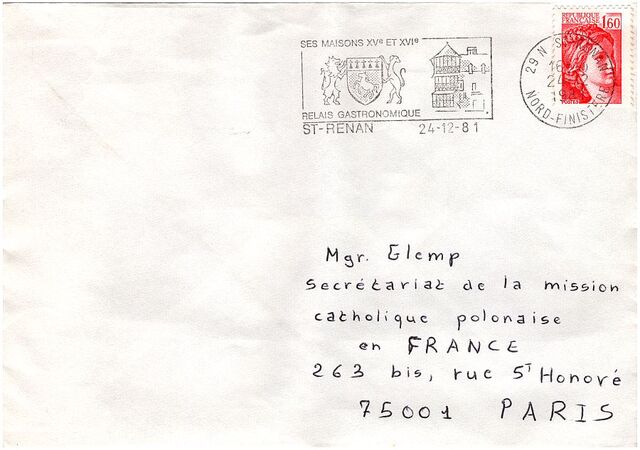 SES MAISONS XVe ET XVIe
RELAIS GASTRONOMIQUE
ST-RENAN 24-12-81
RÉPUBLIQUE
FRANÇAISE
1,60
29 N
NORD-FINISTERE
Mgr. Glemp
Secrétariat de la mission
catholique polonaise
en FRANCE
263 bis, rue ST Honoré
75001 PARIS